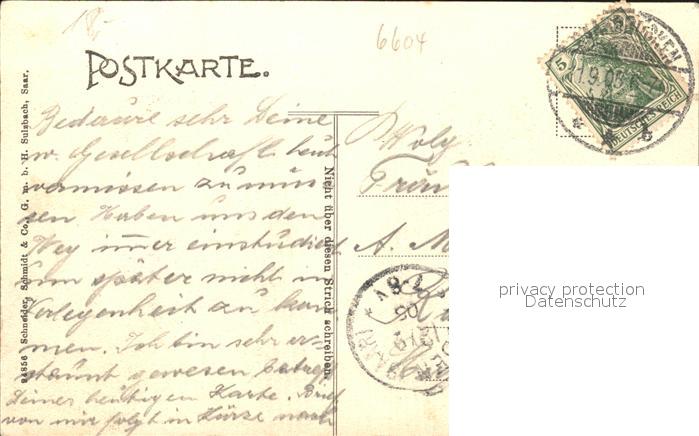 18,-
6604
POSTKARTE.
5
DEUTSCHES REICH
24856 Schneider, Schmidt & Co., G. m. b. H. Sulzbach, Saar.
Nicht über diesen Strich schreiben.
Bedaure sehr Deine
w. Gesellschaft heut
vermissen zu müs-
sen Haben uns den
Weg immer einstudiert
um später nicht in
Verlegenheit zu kom
men. Ich bin sehr er-
staunt gewesen betreff
Deiner heutigen Karte. Brief
von mir folgt in Kürze nach
Fräu
A. M
privacy protection
Datenschutz